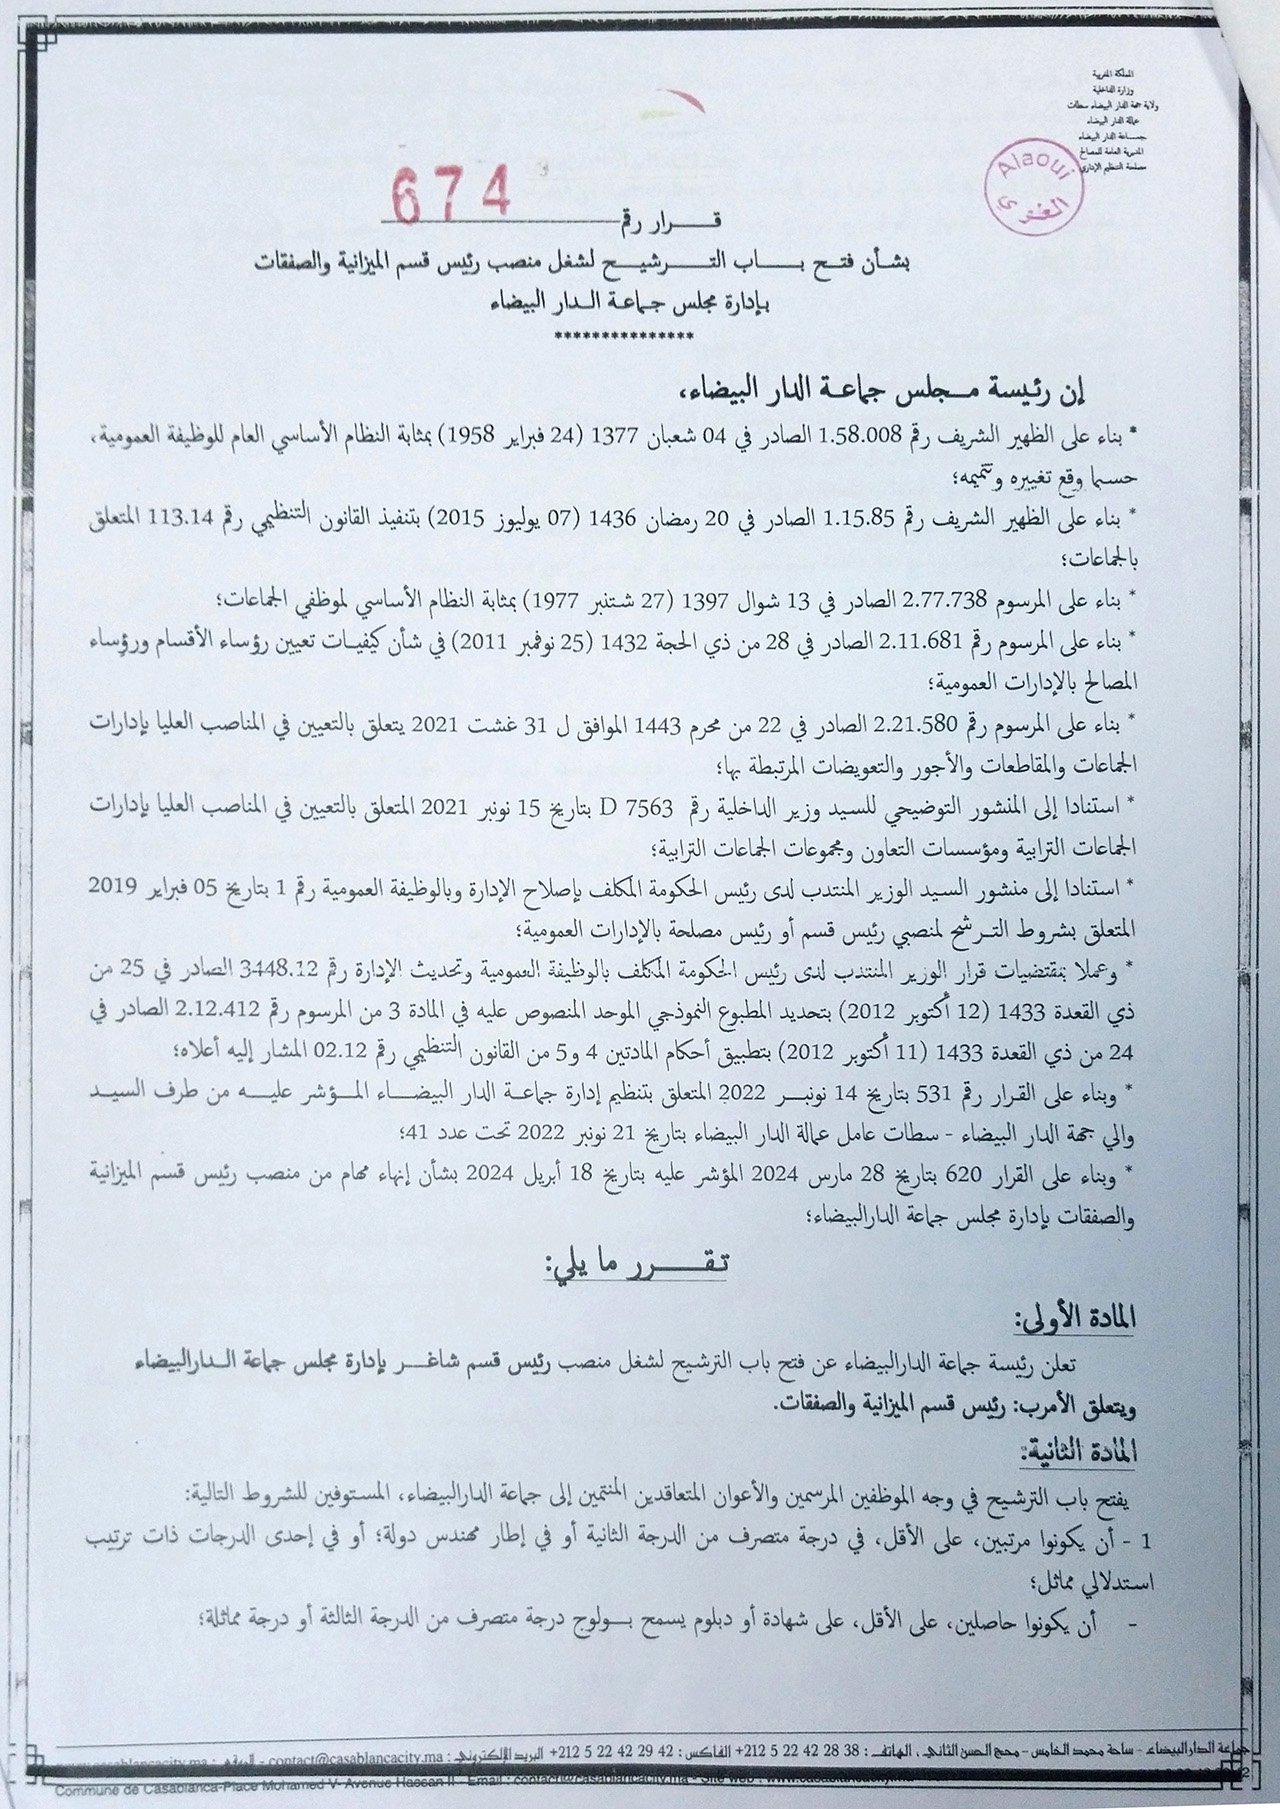 المملكة المغربية
وزارة الداخلية
ولاية جهة الدار البيضاء سطات
عمالة الدار البيضاء
جمـاعة الدار البيضاء
المديرية العامة للمصالح
مصلحة التنظيم الإداري
Alaoui
قـــرار رقم 674
بشأن فتـح بـــاب التــرشيــح لشغل منصب رئيس قسم الميزانية والصفقات
بإدارة مجلس جـماعـة الـدار البيضاء
***************
إن رئيسة مـجلس جماعـة الدار البيضاء،
* بناء على الظهير الشريف رقم 1.58.008 الصادر في 04 شعبان 1377 (24 فبراير 1958) بمثابة النظام الأساسي العام للوظيفة العمومية،
حسبما وقع تغييره وتتميمه؛
* بناء على الظهير الشريف رقم 1.15.85 الصادر في 20 رمضان 1436 (07 يوليوز 2015) بتنفيذ القانون التنظيمي رقم 113.14 المتعلق
بالجماعات؛
* بناء على المرسوم 2.77.738 الصادر في 13 شوال 1397 (27 شتنبر 1977) بمثابة النظام الأساسي لموظفي الجماعات؛
* بناء على المرسوم رقم 2.11.681 الصادر في 28 من ذي الحجة 1432 (25 نوفمبر 2011) في شأن كيفيـات تعيين رؤساء الأقسام ورؤساء
المصالح بالإدارات العمومية؛
* بناء على المرسوم رقم 2.21.580 الصادر في 22 من محرم 1443 الموافق ل 31 غشت 2021 يتعلق بالتعيين في المناصب العليا بإدارات
الجماعات والمقاطعات والأجور والتعويضات المرتبطة بها؛
* استنادا إلى المنشور التوضيحي للسيد وزير الداخلية رقم D 7563 بتاريخ 15 نونبر 2021 المتعلق بالتعيين في المناصب العليا بإدارات
الجماعات الترابية ومؤسسات التعاون ومجموعات الجماعات الترابية؛
* استنادا إلى منشور السيد الوزير المنتدب لدى رئيس الحكومة المكلف بإصلاح الإدارة وبالوظيفة العمومية رقم 1 بتاريخ 05 فبراير 2019
المتعلق بشروط الترشح لمنصبي رئيس قسم أو رئيس مصلحة بالإدارات العمومية؛
* وعملا بمقتضيات قرار الوزير المنتدب لدى رئيس الحكومة المكلف بالوظيفة العمومية وتحديث الإدارة رقم 3448.12 الصادر في 25 من
ذي القعدة 1433 (12 أكتوبر 2012) بتحديد المطبوع النموذجي الموحد المنصوص عليه في المادة 3 من المرسوم رقم 2.12.412 الصادر في
24 من ذي القعدة 1433 (11 أكتوبر 2012) بتطبيق أحكام المادتين 4 و5 من القانون التنظيمي رقم 02.12 المشار إليه أعلاه؛
* وبناء على القرار رقم 531 بتاريخ 14 نونبــر 2022 المتعلق بتنظيم إدارة جماعـة الدار البيضـاء المـؤشر عليــه من طرف السيـد
والي جهة الدار البيضاء - سطات عامل عمالة الدار البيضاء بتاريخ 21 نونبر 2022 تحت عدد 41؛
* وبناء على القرار 620 بتاريخ 28 مارس 2024 المؤشر عليه بتاريخ 18 أبريل 2024 بشأن إنهاء مهام من منصب رئيس قسم الميزانية
والصفقات بإدارة مجلس جماعة الدارالبيضاء؛
تـقــــرر ما يلي:
المادة الأولى:
تعلن رئيسة جماعة الدارالبيضاء عن فتح باب الترشيح لشغل منصب رئيس قسم شاغــر بإدارة مجلس جماعة الـدارالبيضاء
ويتعلق الأمرب: رئيس قسم الميزانية والصفقات.
المادة الثانية:
يفتح باب الترشيح في وجه الموظفين المرسمين والأعوان المتعاقدين المنتمين إلى جماعة الدارالبيضاء، المستوفين للشروط التالية:
1 - أن يكونوا مرتبين، على الأقل، في درجة متصرف من الدرجة الثانية أو في إطار مهندس دولة؛ أو في إحدى الدرجات ذات ترتيب
استدلالي مماثل؛
- أن يكونوا حاصلين، على الأقل، على شهادة أو دبلوم يسمح بـولوج درجة متصرف من الدرجة الثالثة أو درجة مماثلة؛
جماعة الدارالبيضاء - ساحة محمد الخامس - محج الحسن الثاني ، الهاتف : 38 28 42 22 5 212+ الفاكس : 42 29 42 22 5 212+ البريد الإلكتروني : contact@casablancacity.ma - الموقع : www.casablancacity.ma
Commune de Casablanca-Place Mohamed V- Avenue Hassan II - Email : contact@casablancacity.ma - Site web : www.casablancacity.ma